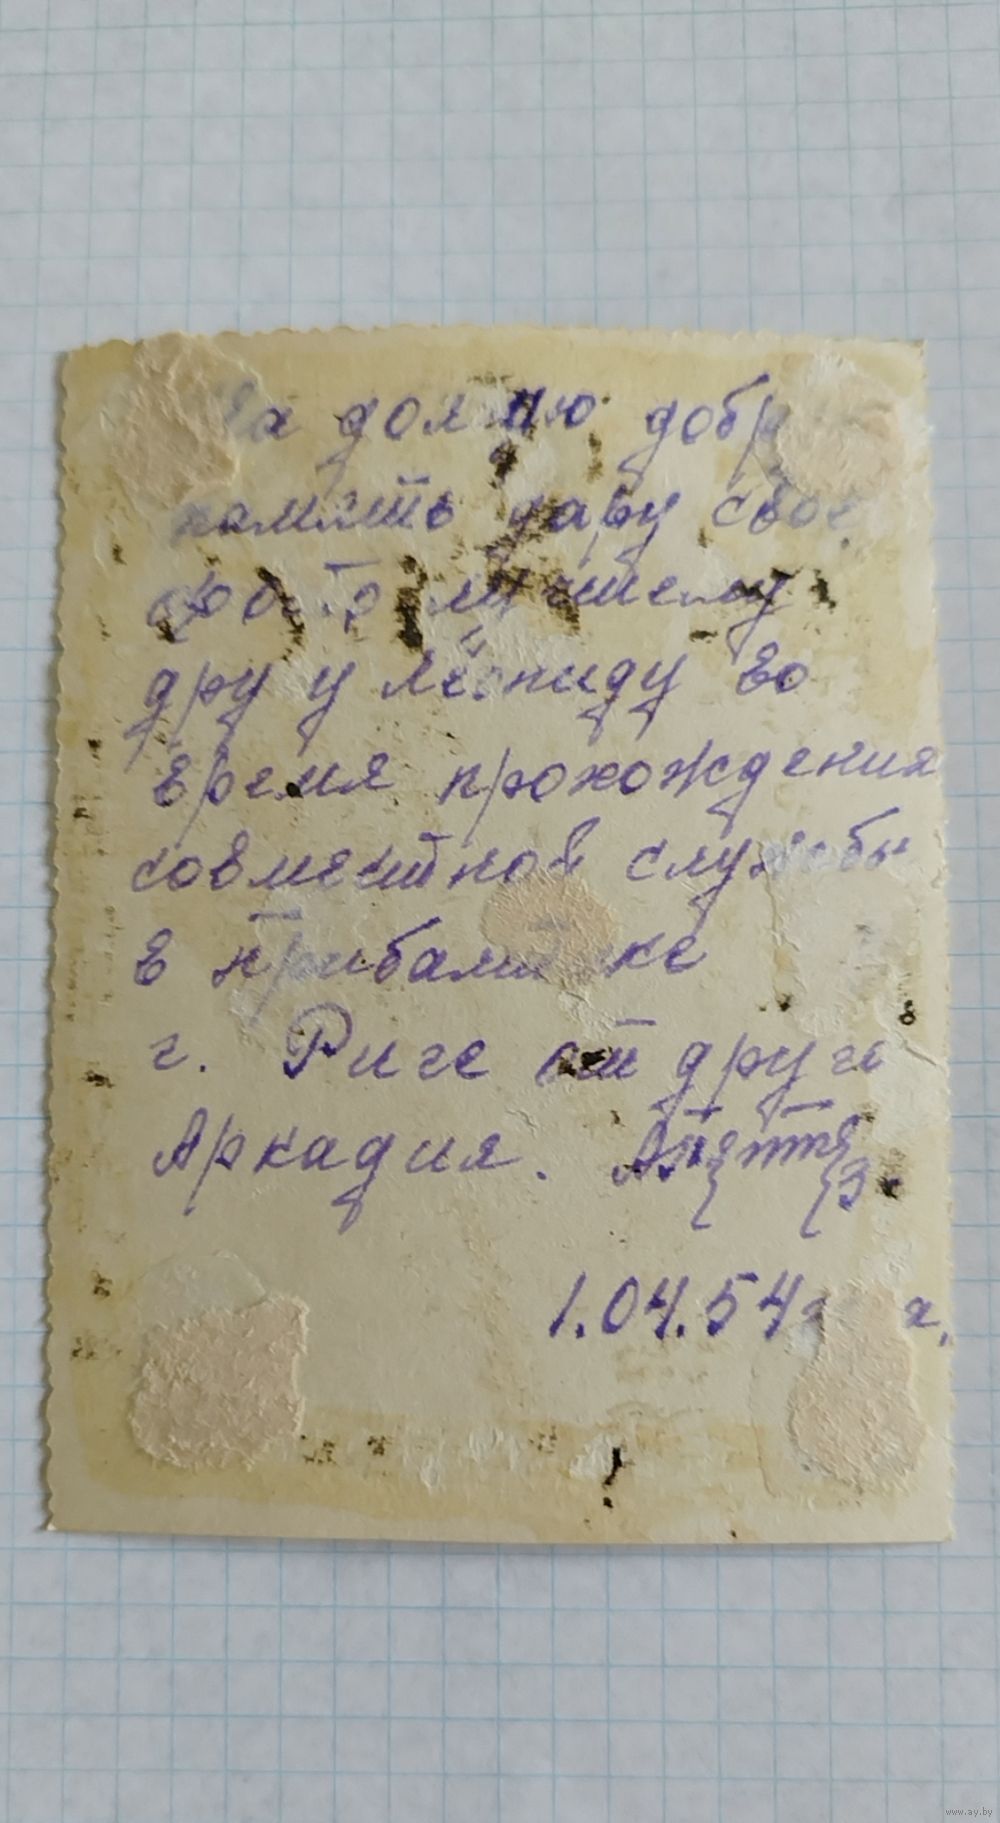 На долгую добр
память дару свое
фото лучшему
другу Лёониду во
время прохождения
совместной службы
в прибалтике
г. Риге от друга
Аркадия.
1.04.54
www.ay.by